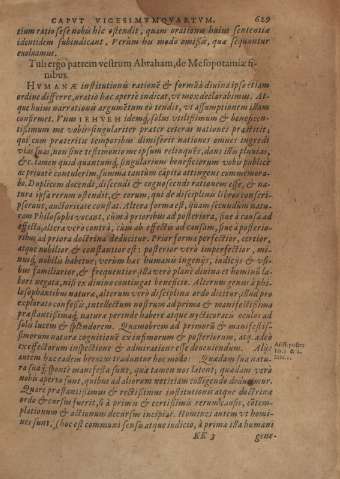 CAPVT VICESIMVMQVARTVM. 629
tium ratio sese nobis hîc ostendit, quam orationis huius sententiæ
identidem subindicant. Verùm his modò omissis, quæ sequuntur
euoluamus.
Tuli ergo patrem vestrum Abraham, de Mesopotamiæ fi-
nibus.
HVMANÆ institutionis rationẽ & formã à diuina ipsa etiam
ordine differre, oratio hæc apertè indicat, vt mox declarabimus. At-
que huius narrationis argumentum eò tendit, vt assumptionem illam
confirmet. Vnum IEHVEH idemq́; solus vtilissimum & beneficen-
tissimum me vobis singulariter præter cæteras nationes præstiti,
qui cum præteritis temporibus dimiserit nationes omnes ingredi
vias suas, non sine testimonio me ipsum reliquit, dans illis pluuias,
&c. tamen quia quantumq́; singularium beneficiorum vobis publicè
ac priuatè contulerim, summa tantum capita attingens commemora-
bo. Duplicem docendi, discendi & cognoscendi rationem esse, & na-
tura ipsa rerum ostendit, & eorum, qui de disciplinis libros conscri-
pserunt, auctoritate constat. Altera forma est, quam secundùm natu-
ram Philosophi vocant, cùm à prioribus ad posteriora, siue à causa ad
effecta, altera verò contrà, cùm ab effectis ad causam, siue à posterio-
ribus ad priora doctrina deducitur. Prior forma perfectior, certior,
atque nobilior & constantior est: posterior verò imperfectior, mi-
nusq́; nobilis habetur, verùm hæc humanis ingenijs, iudicijs & vsi-
bus familiarior, & frequentior, illa verò planè diuina et hominũ la-
bore negata, nisi ex diuino contingat beneficio. Alterum genus à phi-
losophantibus naturæ, alterum verò disciplina ordo dicitur, illud pro
explorato confessis, intellectum nostrum ad prima & manifestissima
præstantissimaq́; natura perinde habere atque nycticoracis oculos ad
solis lucem & splendorem. Quamobrem ad primoris & manifestis-
simorum natura cognitionẽ ex infimorum & posteriorum, atq́; adeò
ex effectorum inspectione & admiratione esse deueniendum.
autem hæc eadem breuius traduntur hoc modo: Quædam sua natu-
ra suaq́; sponte manifesta sunt, quæ tamen nos latent, quædam verò
nobis aperta sunt, quibus ad aliorum notitiam colligendo deuenimus.
Quare præstantissimus & rectissimus institutionis atque doctrinæ
ordo & cursus fuerit, si à primis & certissimis rerum causis, cõtem-
plationum & actionum decursus incipiat. Homines autem vt homi-
nes sunt, (hoc est communi sensu atque indicio, à prima illa humani
KK 3 gene-